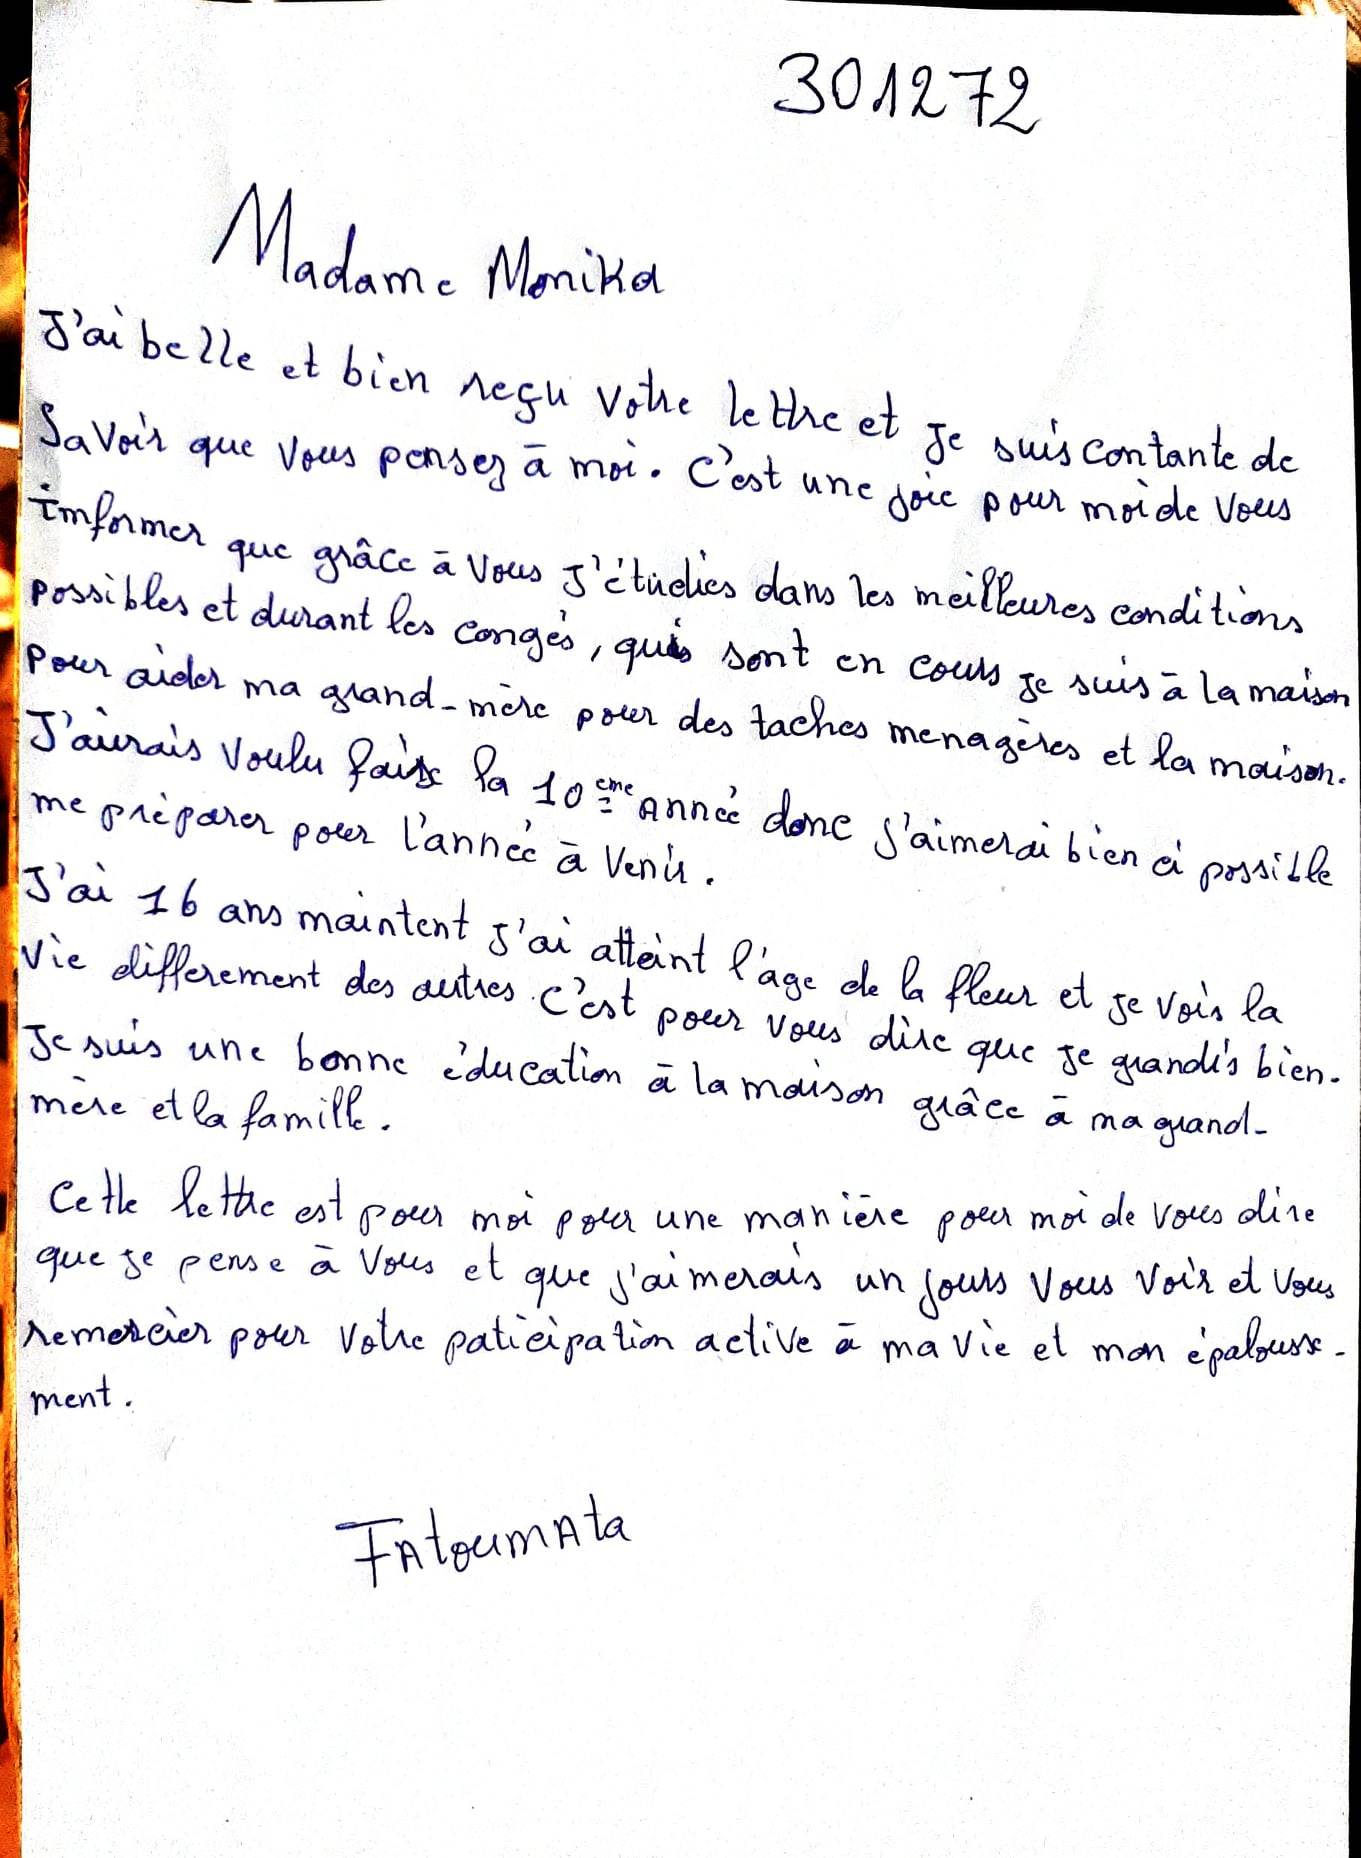 301272
Madame Monika
J'ai belle et bien reçu votre lettre et je suis contante de
Savoir que vous pensez à moi. C'est une joie pour moi de vous
imformer que grâce à vous J'étudies dans les meilleures conditions
possibles et durant les congés, quis sont en cours je suis à la maison
pour aider ma grand-mère pour des taches menagères et la maison.
J'aurais voulu faire la 10ème Année donc j'aimerai bien ci possible
me préparer pour l'année à venir.
J'ai 16 ans maintent J'ai atteint l'age de la fleur et je vois la
vie differement des autres. C'est pour vous dire que je grandis bien.
Je suis une bonne éducation à la maison grâce à ma grand-
mère et la famille.
Cette lettre est pour moi pour une manière pour moi de vous dire
que je pense à vous et que j'aimerais un jours vous voir et vous
remercier pour votre paticipation active à ma vie et mon épalousse-
ment.
FAtoumAta